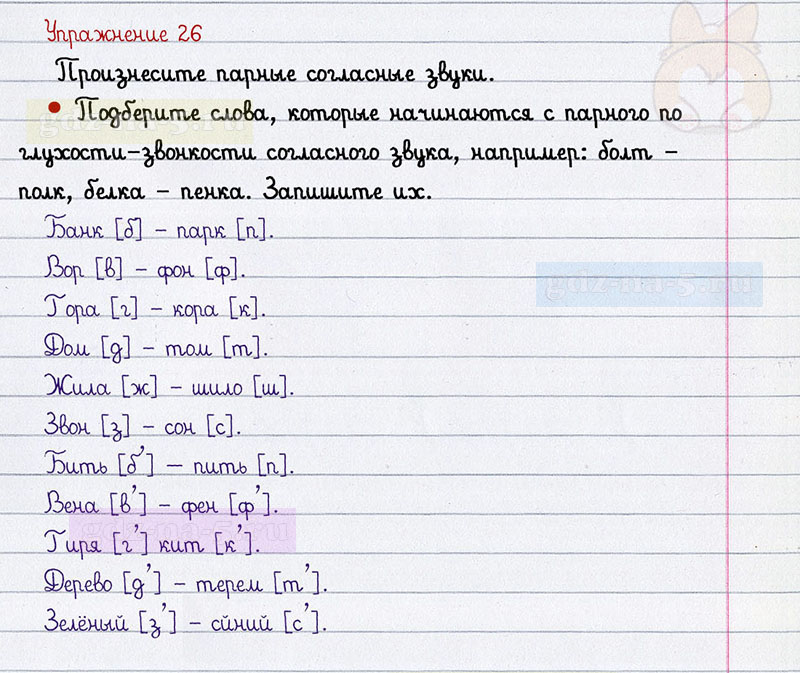 Упражнение 26
Произнесите парные согласные звуки.
• Подберите слова, которые начинаются с парного по
глухости-звонкости согласного звука, например: болт –
полк, белка – пенка. Запишите их.
Банк [б] – парк [п].
Вор [в] – фон [ф].
gdz-na-5.ru
Гора [г] – кора [к].
Дом [д] – том [т].
Жила [ж] – шило [ш].
Звон [з] – сон [с].
Бить [б'] — пить [п].
Вена [в'] – фен [ф'].
gdz-na-5.ru
Гиря [г'] кит [к'].
Дерево [д'] – терем [т'].
Зелёный [з'] – сйний [с'].